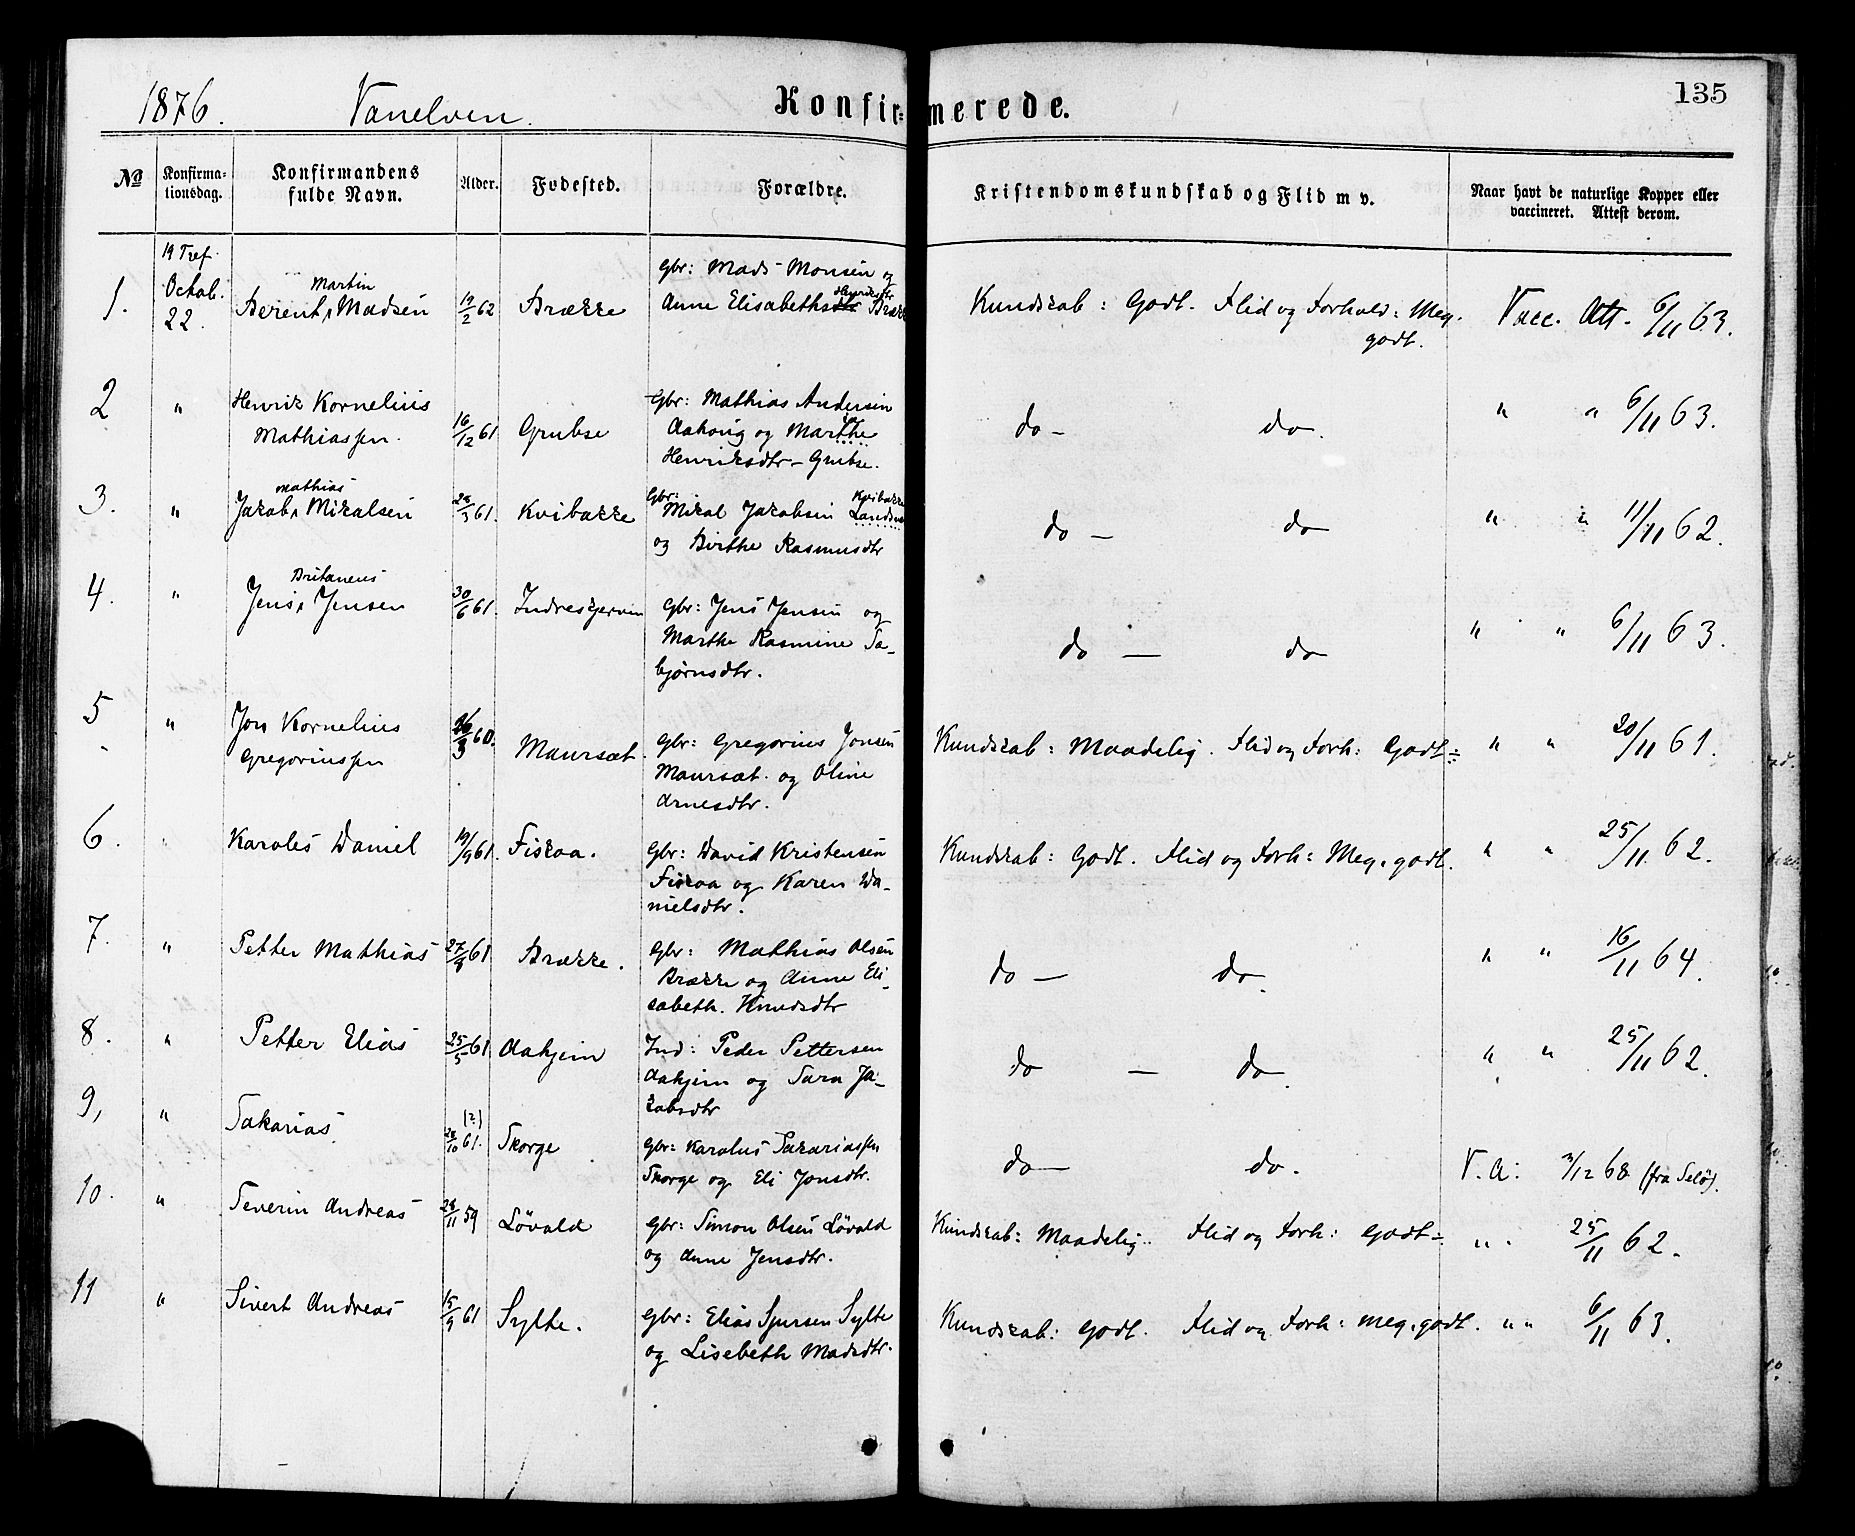 1876. Vanelven. Konfirmerede. 135
№ Konfirma-tionsdag. Konfirmandens fulde Navn. Alder. Fødested. Forældre. Kristendomskundskab og Flid m v. Naar havt de naturlige Kopper eller vaccineret. Attest derom.
19 Tref. Gbr: Mads Monsen og
1. Octob. 22. Berent Martin Madsen 19/2 62 Brække Anne Elisabeth Henriksdtr Bræk Kundskab: Godt. Flid og Forhold: Meg. godt. Vacc. Att. 6/11 63.
2 " Henrik Kornelius Gbr: Mathias Andersen
Mathiassen. 16/12 61 Grubse og Marthe do - do. " " 6/11 63.
Henriksdtr - Grubse.
3. " Jakob Mathias Mikalsen 61. Kvibakke Gbr: Mikal Jakobsen Kvibakke
og Birthe Rasmusdtr do - do " " 11/11 62.
4. " Jens Jensen 30/6 61. Indreskjervin Gbr: Jens Jensen og
Marthe Rasmine Ta- do - do " " 6/11 63.
bjørnsdtr.
5 " Jon Kornelius 60. Gbr: Gregorius Jonsen
Gregoriussen Maursæt. Maursæt. og Oline Kundskab: Maadelig. Flid og Forh: Godt÷ " " 20/11 61.
Arnesdtr.
6. " Karoles Daniel 19/9 61. Fiskaa. Gbr: David Kristensen Kundskab: Godt. Flid og Forh: Meg. godt. " " 25/11 62.
Fiskaa og Karen Da-
nielsdtr.
7. " Petter Mathias 61 Brække. Gbr: Mathias Olsen
Brække og Anne Eli- do - do. " " 16/11 64.
sabeth. Knudsdtr
8. " Petter Elias 25/5 61 Aahjem Ind: Peder Pettersen
Aahjem og Sara Ja- do - do. " " 25/11 62.
kobsdtr
9, " Sakarias (?) 61. Skorge Gbr: Karolus Sakariassen
Skorge og Eli Jonsdtr. do - do. V. A: 3/12 68 (fra Selø).
10. " Severin Andreas 59 Løvald Gbr: Simon Olsen Løvald Kundskab: Maadelig. Flid og Forh: Godt÷ " " 25/11 62.
og Anne Jensdtr.
11 " Sivert Andreas 15/9 61 Sylte. Gbr: Elias Sjursen Sylte Kundskab: Godt. Flid og Forh: Meg. godt. " " 6/11 63.
og Lisebeth Madsdtr.